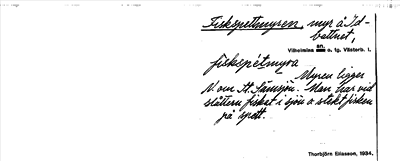 Fiskspettmyren, myr å Id-
bättnet,
Vilhelmina sn. o. lg. Västerb. l.
fiskspétmyra
Myren ligger
N om St. Sämsjön. Man har vid
slåttern fiskat i sjön o. stekt fisken
på spett.
Thorbjörn Eliasson, 1934.